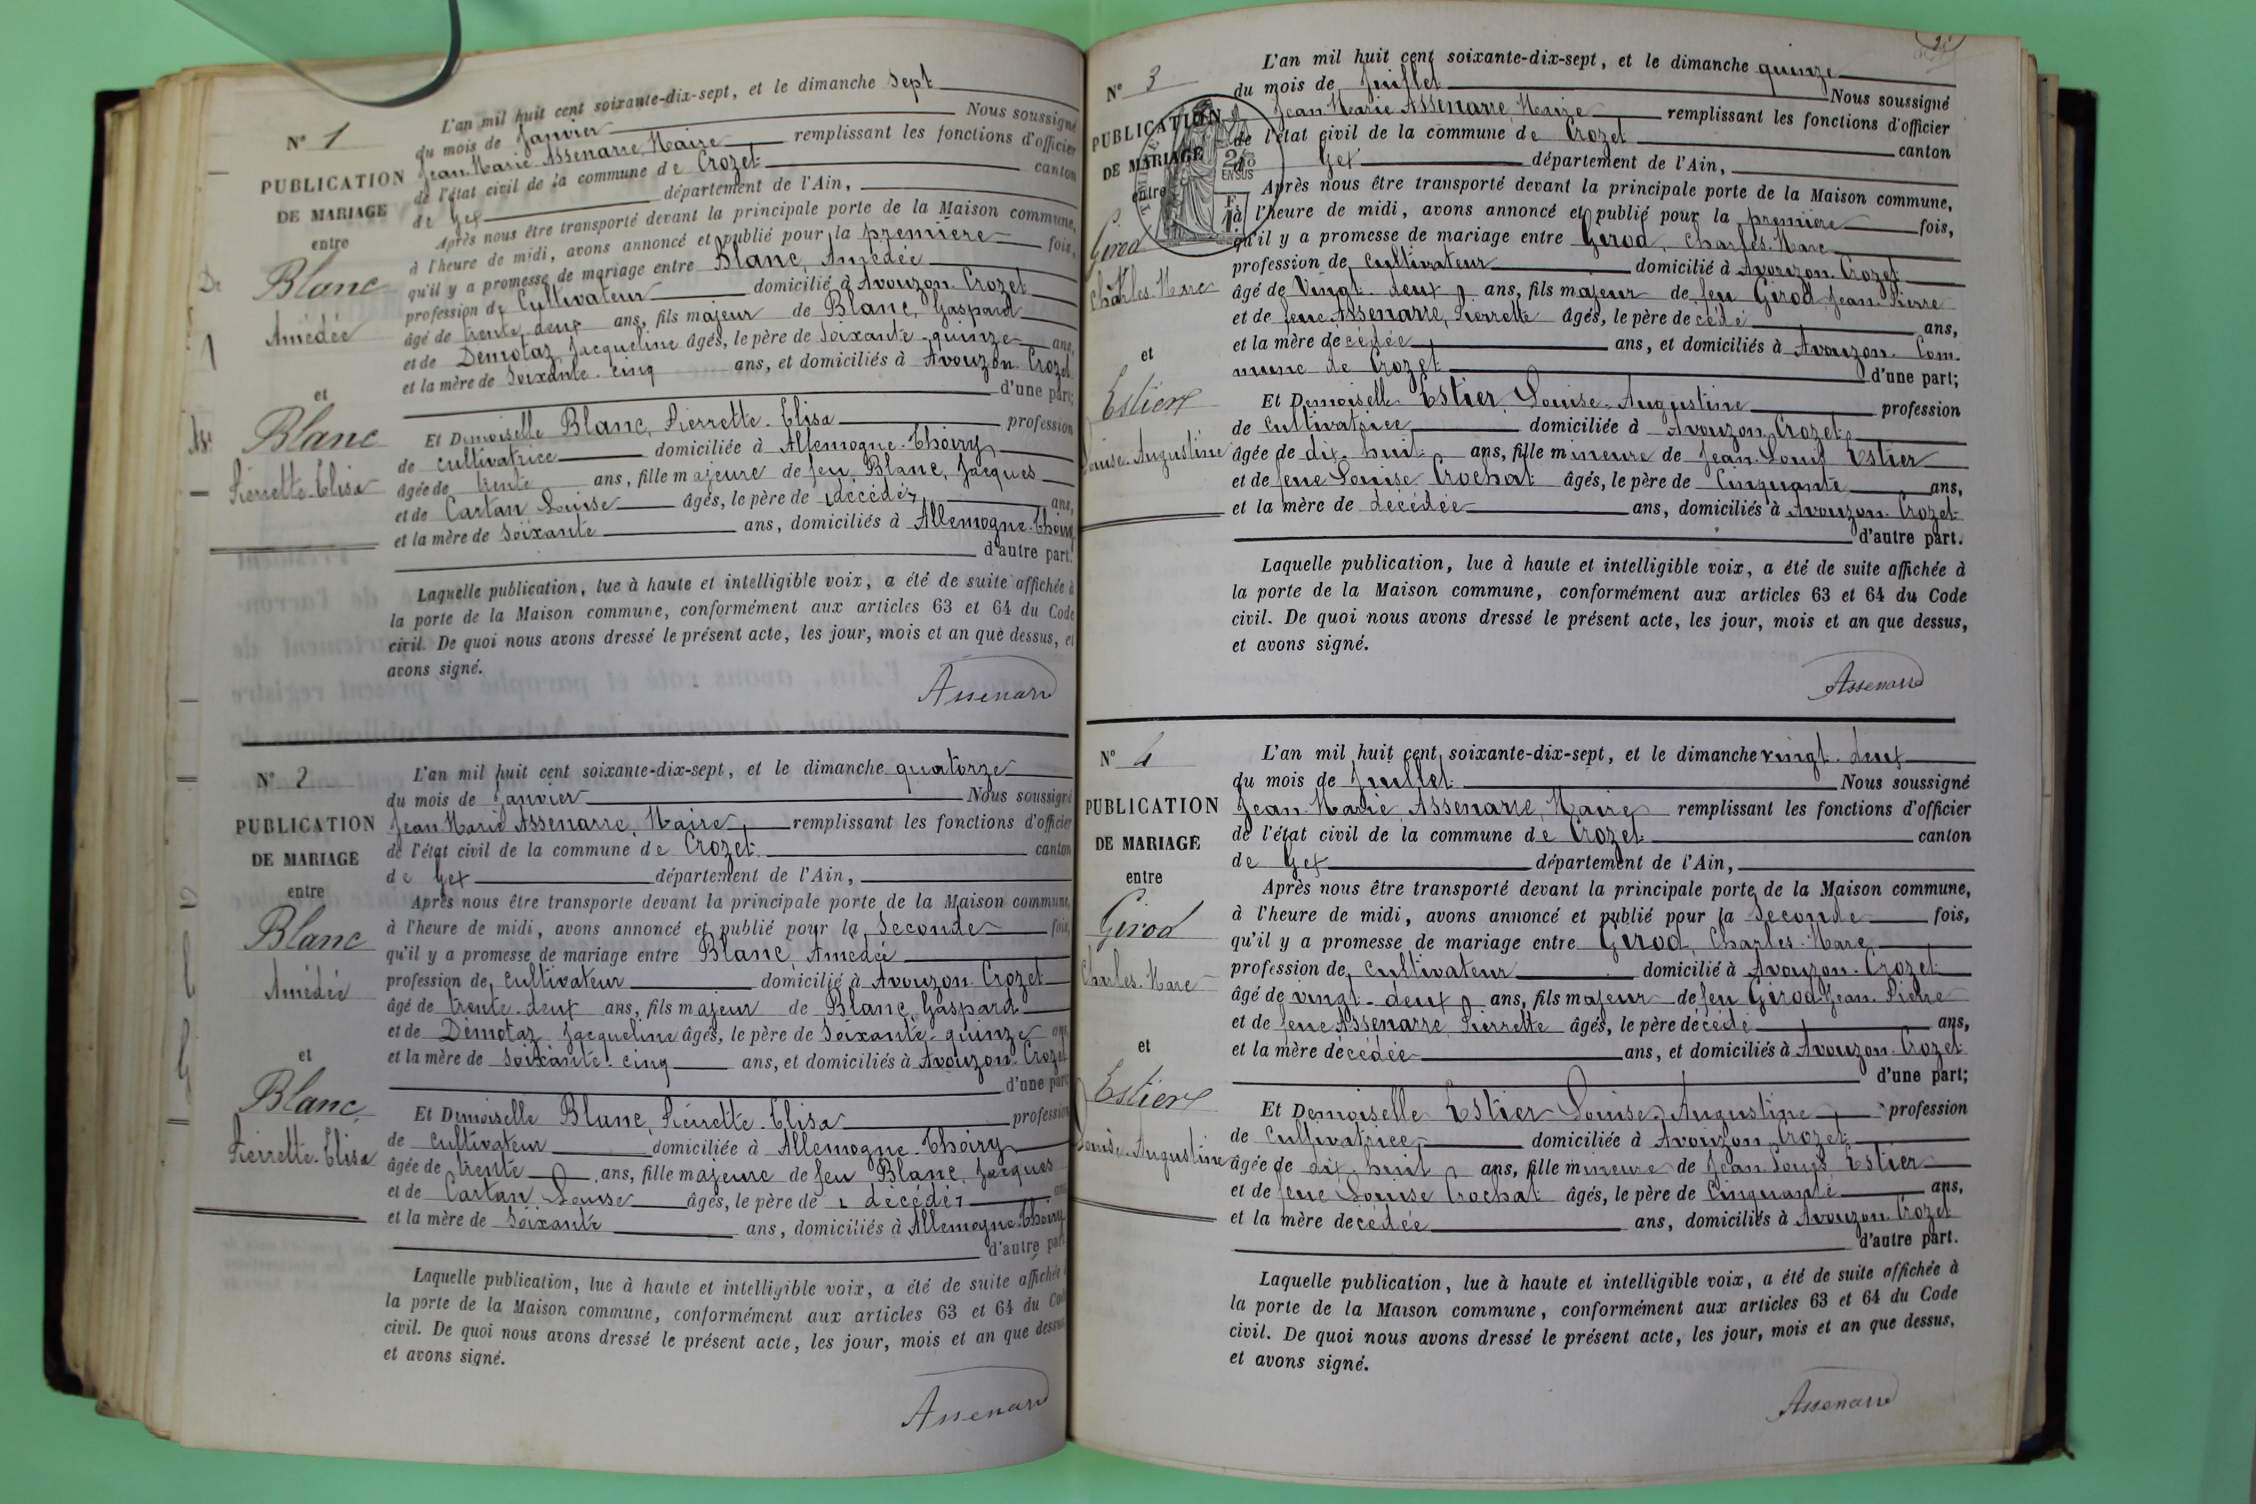 N° 1
PUBLICATION
DE MARIAGE
entre
Blanc
Amédée
et
Blanc
Pierrette-Elisa
L'an mil huit cent soixante-dix-sept, et le dimanche Sept
du mois de Janvier Nous soussigné
Jean-Marie Assenarre, Maire remplissant les fonctions d'officier
de l'état civil de la commune de Crozet canton
de Gex département de l'Ain,
Après nous être transporté devant la principale porte de la Maison commune,
à l'heure de midi, avons annoncé et publié pour la première fois,
qu'il y a promesse de mariage entre Blanc, Amédée
profession de Cultivateur domicilié à Avouzon-Crozet
âgé de trente-deux ans, fils majeur de Blanc, Gaspard
et de Démotaz Jacqueline âgés, le père de Soixante-quinze ans,
et la mère de Soixante-cinq ans, et domiciliés à Avouzon-Crozet
d'une part;
Et Demoiselle Blanc, Pierrette-Elisa profession
de cultivatrice domiciliée à Allemogne-Thoiry
âgée de trente ans, fille majeure de feu Blanc, Jacques
et de Cartan Louise âgés, le père de décédé ans,
et la mère de Soixante ans, domiciliés à Allemogne-Thoiry
d'autre part.
Laquelle publication, lue à haute et intelligible voix, a été de suite affichée à
la porte de la Maison commune, conformément aux articles 63 et 64 du Code
civil. De quoi nous avons dressé le présent acte, les jour, mois et an que dessus, et
avons signé.
Assenarre
N° 2
PUBLICATION
DE MARIAGE
entre
Blanc
Amédée
et
Blanc
Pierrette-Elisa
L'an mil huit cent soixante-dix-sept, et le dimanche quatorze
du mois de Janvier Nous soussigné
Jean Marie Assenarre, Maire, remplissant les fonctions d'officier
de l'état civil de la commune de Crozet canton
de Gex département de l'Ain,
Après nous être transporté devant la principale porte de la Maison commune,
à l'heure de midi, avons annoncé et publié pour la Seconde fois,
qu'il y a promesse de mariage entre Blanc, Amédée
profession de Cultivateur domicilié à Avouzon-Crozet
âgé de trente-deux ans, fils majeur de Blanc, Gaspard
et de Démotaz Jacqueline âgés, le père de Soixante-quinze ans,
et la mère de soixante-cinq ans, et domiciliés à Avouzon-Crozet
d'une part
Et Demoiselle Blanc, Pierrette-Elisa profession
de cultivateur domiciliée à Allemogne-Thoiry
âgée de trente ans, fille majeure de feu Blanc, Jacques
et de Cartan Louise âgés, le père de décédé ans
et la mère de Soixante ans, domiciliés à Allemogne-Thoiry
d'autre part
Laquelle publication, lue à haute et intelligible voix, a été de suite affichée à
la porte de la Maison commune, conformément aux articles 63 et 64 du Code
civil. De quoi nous avons dressé le présent acte, les jour, mois et an que dessus
et avons signé.
Assenarre
N° 3
PUBLICATION
DE MARIAGE
entre
Girod
Charles-Marc
et
Estier
Louise-Augustine
L'an mil huit cent soixante-dix-sept, et le dimanche quinze
du mois de Juillet Nous soussigné
Jean-Marie Assenarre, Maire remplissant les fonctions d'officier
de l'état civil de la commune de Crozet canton
de Gex département de l'Ain,
Après nous être transporté devant la principale porte de la Maison commune,
à l'heure de midi, avons annoncé et publié pour la première fois,
qu'il y a promesse de mariage entre Girod, Charles-Marc
profession de Cultivateur domicilié à Avouzon-Crozet
âgé de Vingt-deux ans, fils majeur de feu Girod Jean-Pierre
et de feue Assenarre, Pierrette âgés, le père de cédé ans,
et la mère de cédée ans, et domiciliés à Avouzon-Com-
mune de Crozet d'une part;
Et Demoiselle Estier, Louise-Augustine profession
de Cultivatrice domiciliée à Avouzon-Crozet
âgée de dix-huit ans, fille mineure de Jean-Louis Estier
et de feue Louise Crochat âgés, le père de Cinquante ans,
et la mère de décédée ans, domiciliés à Avouzon-Crozet
d'autre part.
Laquelle publication, lue à haute et intelligible voix, a été de suite affichée à
la porte de la Maison commune, conformément aux articles 63 et 64 du Code
civil. De quoi nous avons dressé le présent acte, les jour, mois et an que dessus,
et avons signé.
Assenarre
N° 4
PUBLICATION
DE MARIAGE
entre
Girod
Charles-Marc
et
Estier
Louise-Augustine
L'an mil huit cent soixante-dix-sept, et le dimanche vingt-deux
du mois de Juillet Nous soussigné
Jean-Marie Assenarre, Maire remplissant les fonctions d'officier
de l'état civil de la commune de Crozet canton
de Gex département de l'Ain,
Après nous être transporté devant la principale porte de la Maison commune,
à l'heure de midi, avons annoncé et publié pour la Seconde fois,
qu'il y a promesse de mariage entre Girod, Charles-Marc
profession de Cultivateur domicilié à Avouzon-Crozet
âgé de vingt-deux ans, fils majeur de feu Girod Jean-Pierre
et de feue Assenarre Pierrette âgés, le père décédé ans,
et la mère décédée ans, et domiciliés à Avouzon-Crozet
d'une part;
Et Demoiselle Estier Louise-Augustine profession
de Cultivatrice, domiciliée à Avouzon-Crozet
âgée de dix-huit ans, fille mineure de Jean-Louis Estier
et de feue Louise Crochat âgés, le père de Cinquante ans,
et la mère decédée ans, domiciliés à Avouzon-Crozet
d'autre part.
Laquelle publication, lue à haute et intelligible voix, a été de suite affichée à
la porte de la Maison commune, conformément aux articles 63 et 64 du Code
civil. De quoi nous avons dressé le présent acte, les jour, mois et an que dessus,
et avons signé.
Assenarre